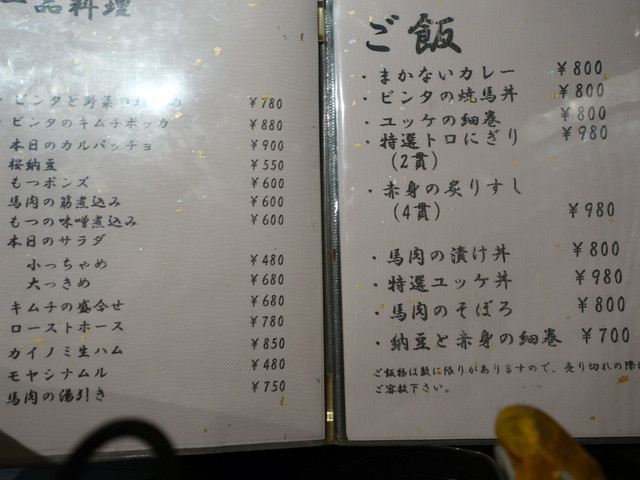 一品料理
・ビンタと野菜の
¥780
・ビンタのキムチポッカ
¥880
本日のカルパッチョ
¥900
桜納豆
¥550
もつポンズ
¥600
馬肉の筋煮込み
¥600
もつの味噌煮込み
¥600
本日のサラダ
小っちゃめ
¥480
大っきめ
¥680
キムチの盛合せ
¥680
ローストホース
¥780
カイノミ生ハム
¥850
モヤシナムル
¥480
馬肉の湯引き
¥750
ご飯
・まかないカレー
¥800
・ビンタの焼馬丼
¥800
・ユッケの細巻
¥800
・特選トロにぎり
¥980
(2貫)
・赤身の炙りすし
(4貫)
¥980
・馬肉の漬け丼
¥800
・特選ユッケ丼
¥980
・馬肉のそぼろ
¥800
・納豆と赤身の細巻
¥700
ご飯物は数に限りがありますので、売り切れの際は
ご容赦下さい。